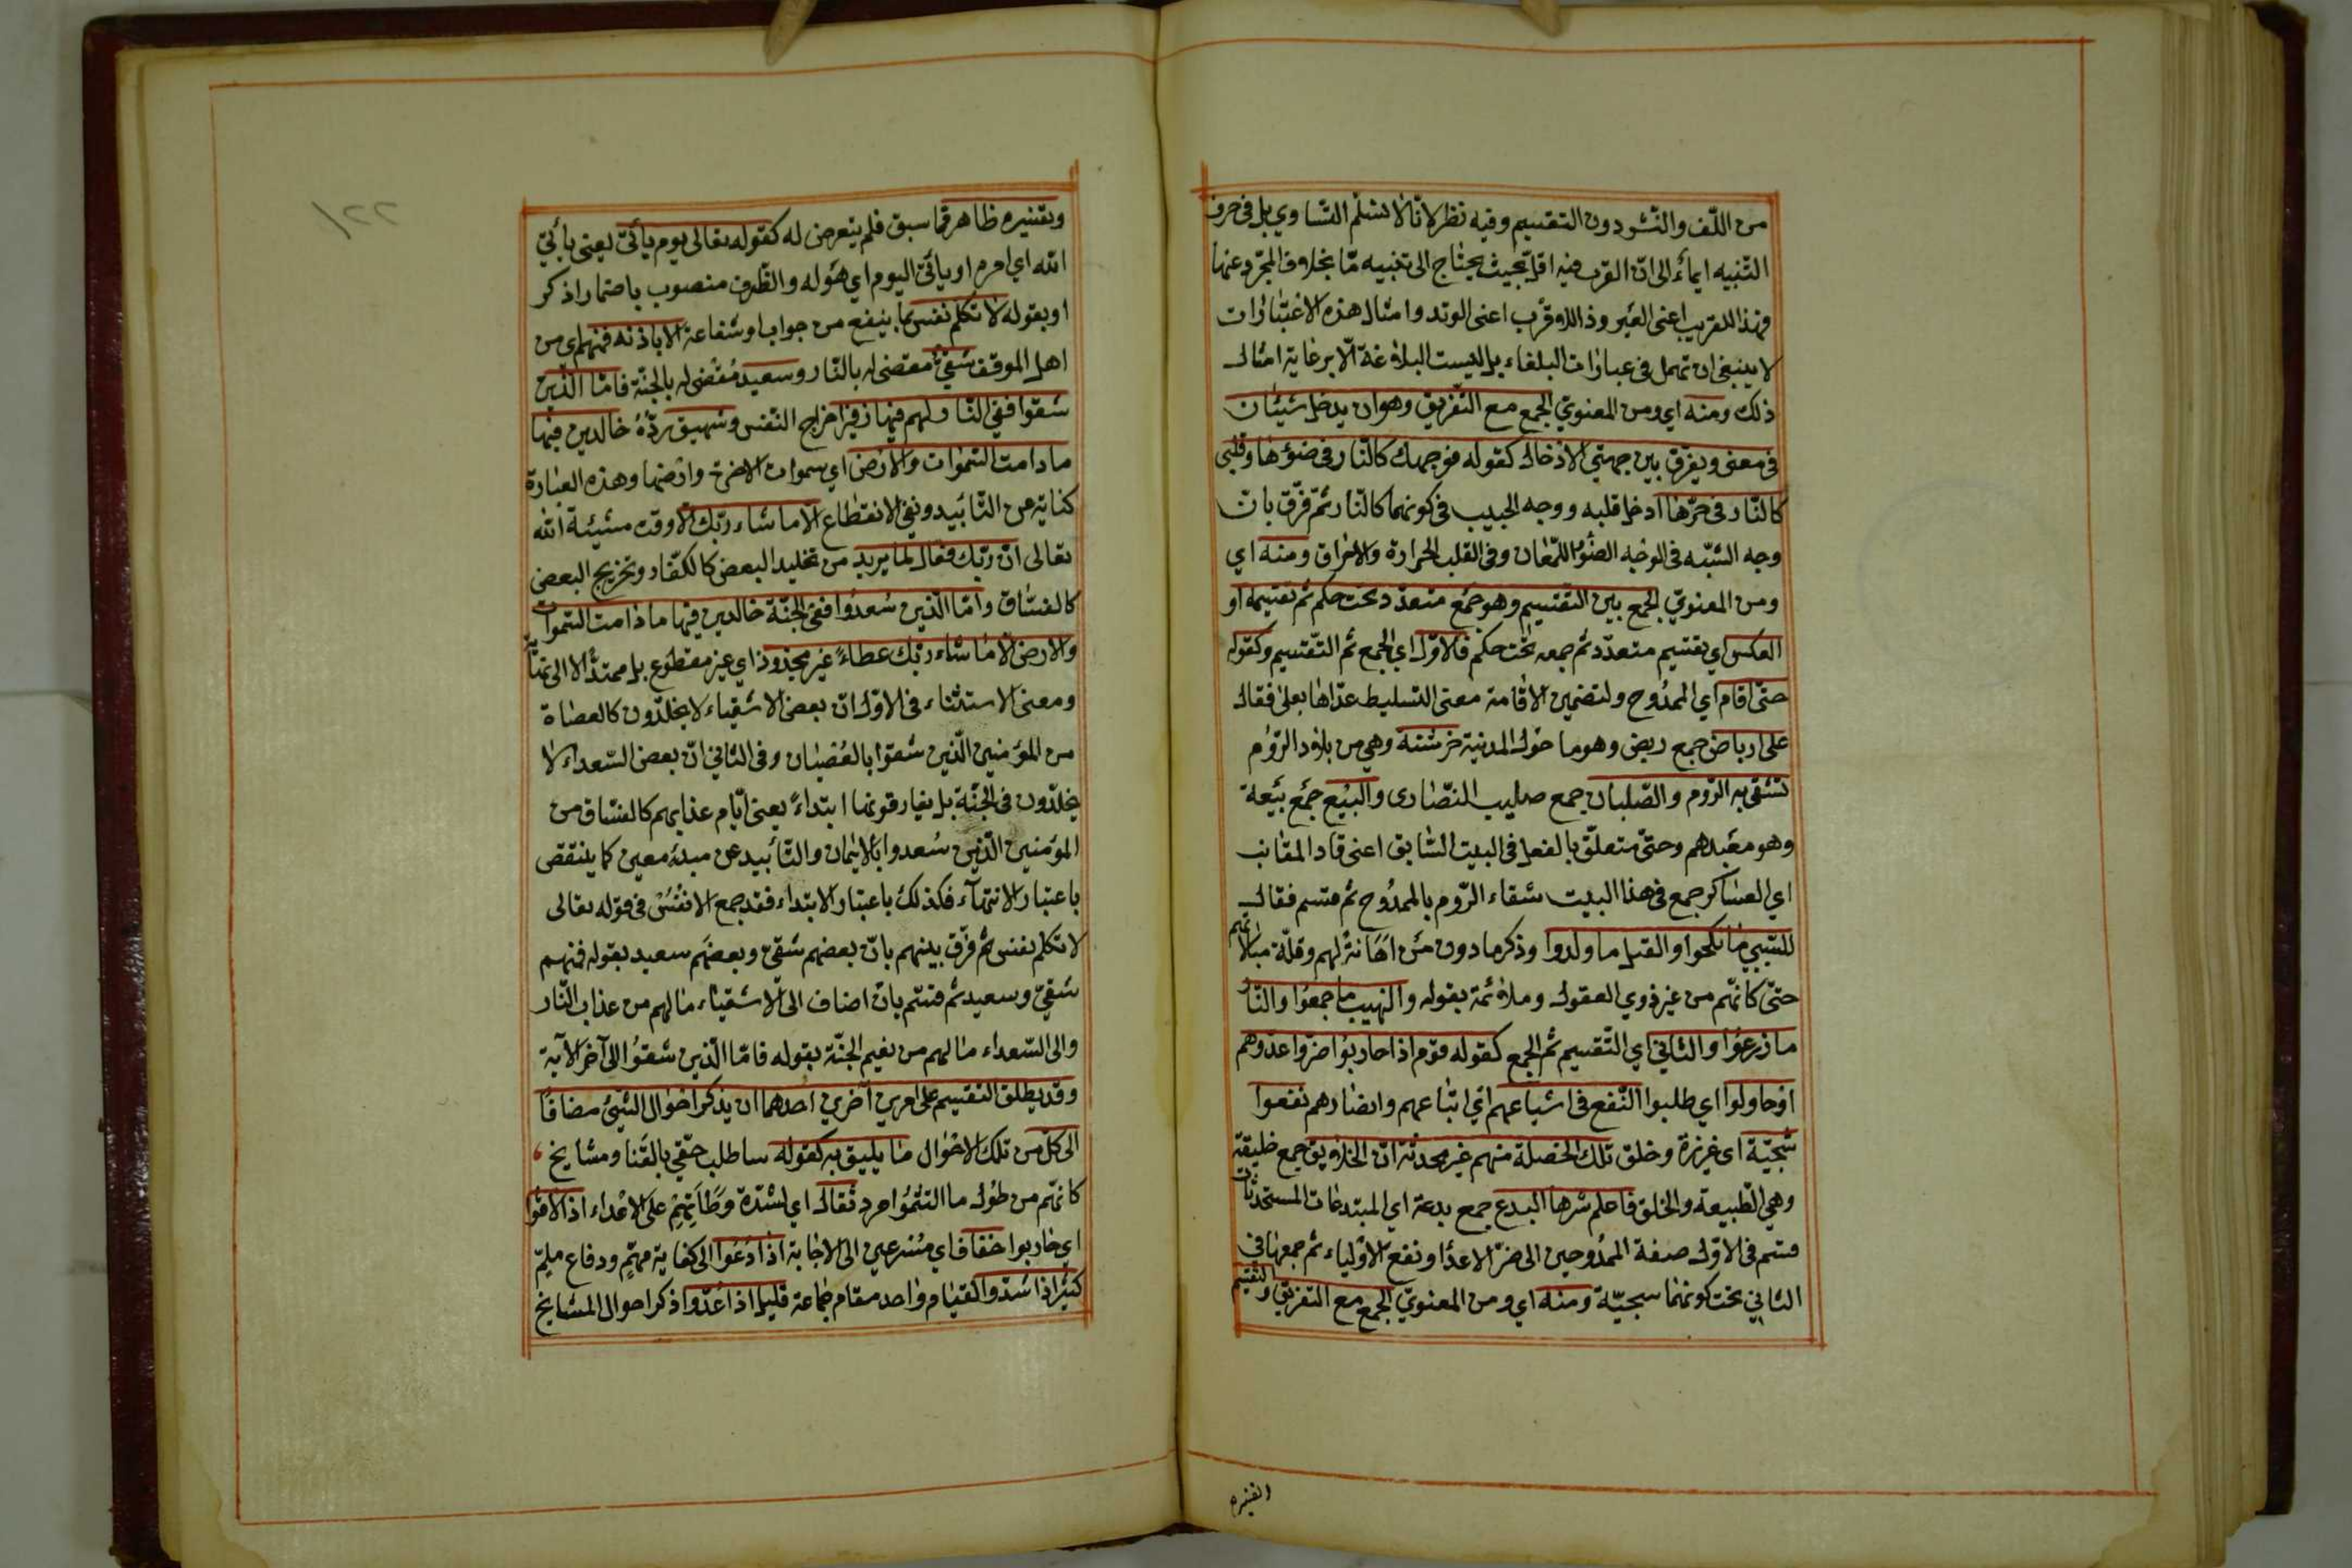 من اللّف والنّشر دون التقسيم وفيه نظر لانّا لا نسلّم التساوي بل في حرف
التّنبيه ايماءً الى انّ القرب فيه اقلّ بحيث يحتاج الى تنبيه مّا بخلاف المجرّد عنها
فهذا للقريب اعنى العَير وذا للاقرب اعنى الوتد وامثال هذه الاعتبارات
لا ينبغى ان تهمل فى عبارات البلغاء بل ليست البلاغة الّا برعاية امثال
ذلك ومنه اي ومن المعنويّ الجمع مع التّفريق وهو ان يدخل شيئان
فى معنى ويفرق بين جهتي الادخال كقوله فوجهك كالنّار فى ضوئها وقلبى
كالنّار فى حرّها ادخل قلبه ووجه الحبيب فى كونهما كالنّار ثمّ فرّق بانّ
وجه الشبّه فى الوجه الضّوُ اللّمعان وفى القلب الحرارة والاحراق ومنه اي
ومن المعنويّ الجمع بين التقسيم وهو جمع متعدّد تحت حكم ثم تقسيمه او
العكس اي تقسيم متعدّد ثم جمعه تحت حكم فالاوّل اي الجمع ثم التّقسيم وكقوله
حتّى اقام اي الممدُوح ولتضمين الاقامة معنى التسليط عدّاها بعلى فقال
على ارباض جمع ربض وهو ما حول المدينة خرشنة وهي من بلاد الرّوم
تشقى به الرّوم والصّلبان جمع صليب النّصارى والبيَع جَمع بيَعة
وهو معبدهم وحتىّ متعلّق بالفعل فى البيت السّابق اعنى قاد المقانب
اي العساكر جمع فى هذا البيت شقاء الرّوم بالممدُوح ثم قسم فقال
للسّبي ما نكحوا والقتل ما ولدوا وذكر ما دون مَن اهَانةً لهم وقلّة مبالاتهم
حتىّ كانّهم من غير ذوي العقول وملائمة بقوله والنهب ما جمعُوا والنّار
ما زرعُوا والثاني اي التّقسيم ثم الجمع كقوله قوم اذا حاربُوا ضرّوا عدوهم
اوحاولوا اي طلبوا النّفع فى اشياعهم اي اتباعهم وانصارهم نفعوا
سجيّة اى غريزة وخلق تلك الخصلة منهم غير محدثة انّ الخلايق جمع خليقة
وهي الطّبيعة والخلق فاعلم شرها البدع جمع بدعة اي المبتدعات المستحدثات
قسم فى الاوّل صفة الممدُوحين الى ضرّ الاعدا ونفع الاولياء ثم جمعها فى
الثاني تحت كونهما سجيّة ومنه اي ومن المعنويّ الجمع مع التفريق والتقسيم
١٢٢
وتفسيره ظاهر ممّا سبق فلم يتعرض له كقوله تعالى يوم يأتى يعنى يأتي
الله اي امره او يأتى اليوم اي هَوله والظّرف منصوب باضمار اذكر
او بقوله لا تكلم نفس بما ينفع من جواب او شفاعة الا باذنه فمنهم اي من
اهل الموقف شقيٌّ مقضى له بالنّار وسعيد مُقضى له بالجنّة فامّا الّذين
شقوا ففى النّار لهم فيها زفير اخراج النّفس وشهيق ردّهُ خالدين فيها
ما دامت السّموات والارض اي سموات الاخرة وارضها وهذه العبارة
كناية من التّأبيد ونفى الانقطاع الا ما شاء ربّك الا وقت مشيئة الله
تعالى انّ ربّك فعّال لما يريد من تخليد البعض كالكفّار وتخريج البعض
كالفسّاق وامّا الّذين سُعدُوا ففى الجنّة خالدين فيها ما دامت السّموات
والارض الّا ما شاء ربّك عطاءً غير مجذوذ اي غير مقطوع بل ممتدًّا لا الى نهاية
ومعنى الاستثناء فى الاوّل انّ بعض الاشقياء لا يخلّدون كالعصاة
من المؤمنين الّذين شقوا بالعُصيان وفى الثاني انّ بعض السّعداء لا
يخلّدون فى الجنّة بل يفارقونها ابتداءً يعنى ايّام عذابهم كالفسّاق من
المؤمنين الّذين سُعدوا بالايمان والتّأبيد عن مبدء معين كما ينتقض
باعتبار الانتهآء فكذلك باعتبار الابتداء فقد جمع الانفُس فى قوله تعالى
لا تكلم نفس ثم فرّق بينهم بانّ بعضهم شقىّ وبعضهَم سعيد بقوله فمنهم
شقيّ وسعيد ثم قسّم بان اضاف الى الاشقياء ما لهم من عذاب النّار
والى السّعداء ما لهم من نعيم الجنّة بقوله فامّا الّذين شقُوا الى آخر الآية
وقد يطلق التقسيم على امرين آخرين احدهما ان يذكر احوال الشّىء مضافًا
الى كلّ من تلك الاحوال ما يليق به كقوله ساطلب حقّي بالقَنا ومشايخ
كانهّم من طُول ما التثمُوا مرد ثقال اي لشدّة وَطأتِهِم على الاعداء اذا لاقوا
اي حاربوا خفاف اي مُسرعين الى الاجابة اذا دُعُوا الى كفاية مهمّ ودفاع ملمّ
كثير اذا شدّوا لقيام واحد مقام جماعة قليل اذا عُدّوا ذكر احوال المشايخ